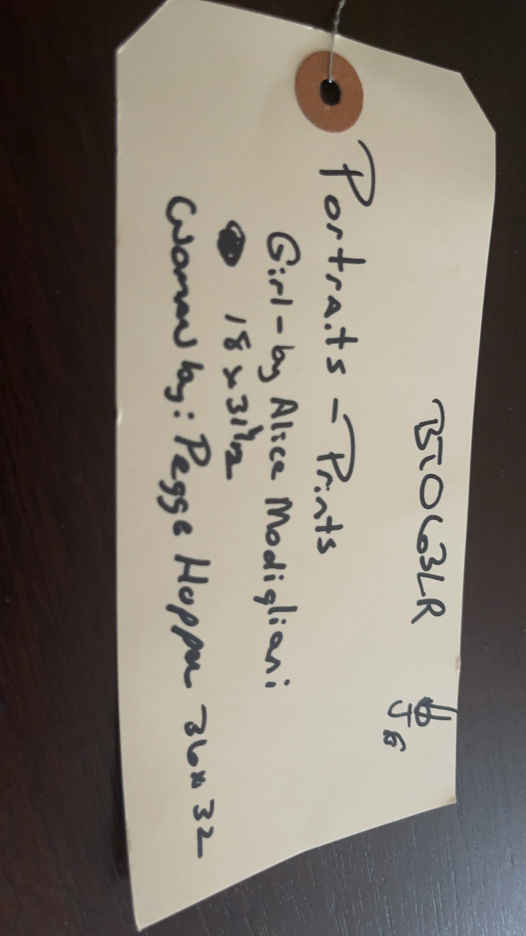 B5063LR
JG
Portraits - Prints
Girl - by Alice Modigliani
18 x 31 1/2
Woman by: Pegge Hopper 36 x 32